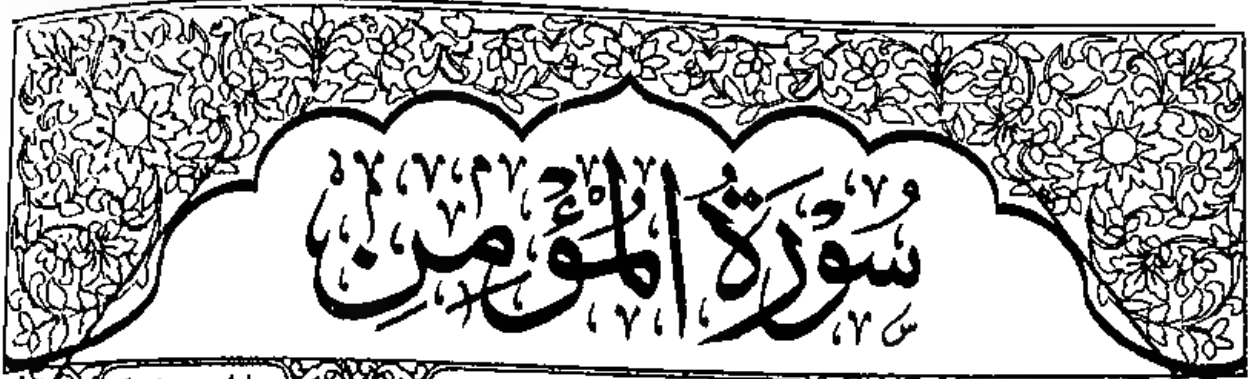 سُوْرَةُ الْمُؤْمِنِ